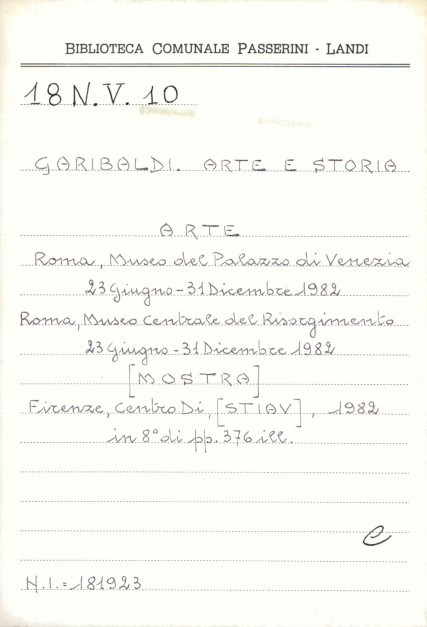 BIBLIOTECA COMUNALE PASSERINI - LANDI
18 N. V. 10
GARIBALDI. ARTE E STORIA
ARTE
Roma, Museo del Palazzo di Venezia
23 Giugno - 31 Dicembre 1982
Roma, Museo Centrale del Risorgimento
23 Giugno - 31 Dicembre 1982
[MOSTRA]
Firenze, Centro Di, [STIAV], 1982
in 8° di pp. 376 ill.
e
N.I. = 181923